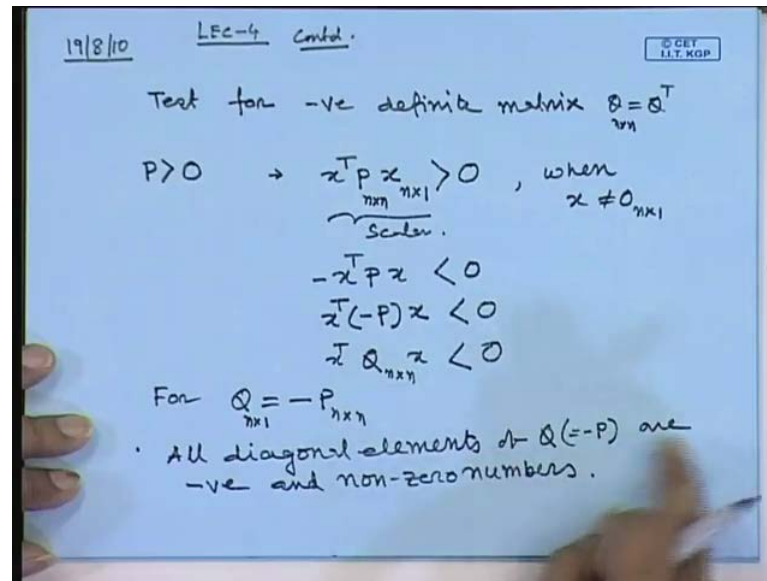 19/8/10 LEC-4 Contd.
© CET
I.I.T. KGP
Test for -ve definite matrix Q = Qᵀ
n×n
P>0 → xᵀ P x > 0 , when
n×n n×1
x ≠ 0 n×1
Scalar.
-xᵀ P x < 0
xᵀ(-P) x < 0
xᵀ Q n×n x < 0
For Q n×1 = - P n×n
· All diagonal elements of Q(=-P) are
-ve and non-zero numbers.